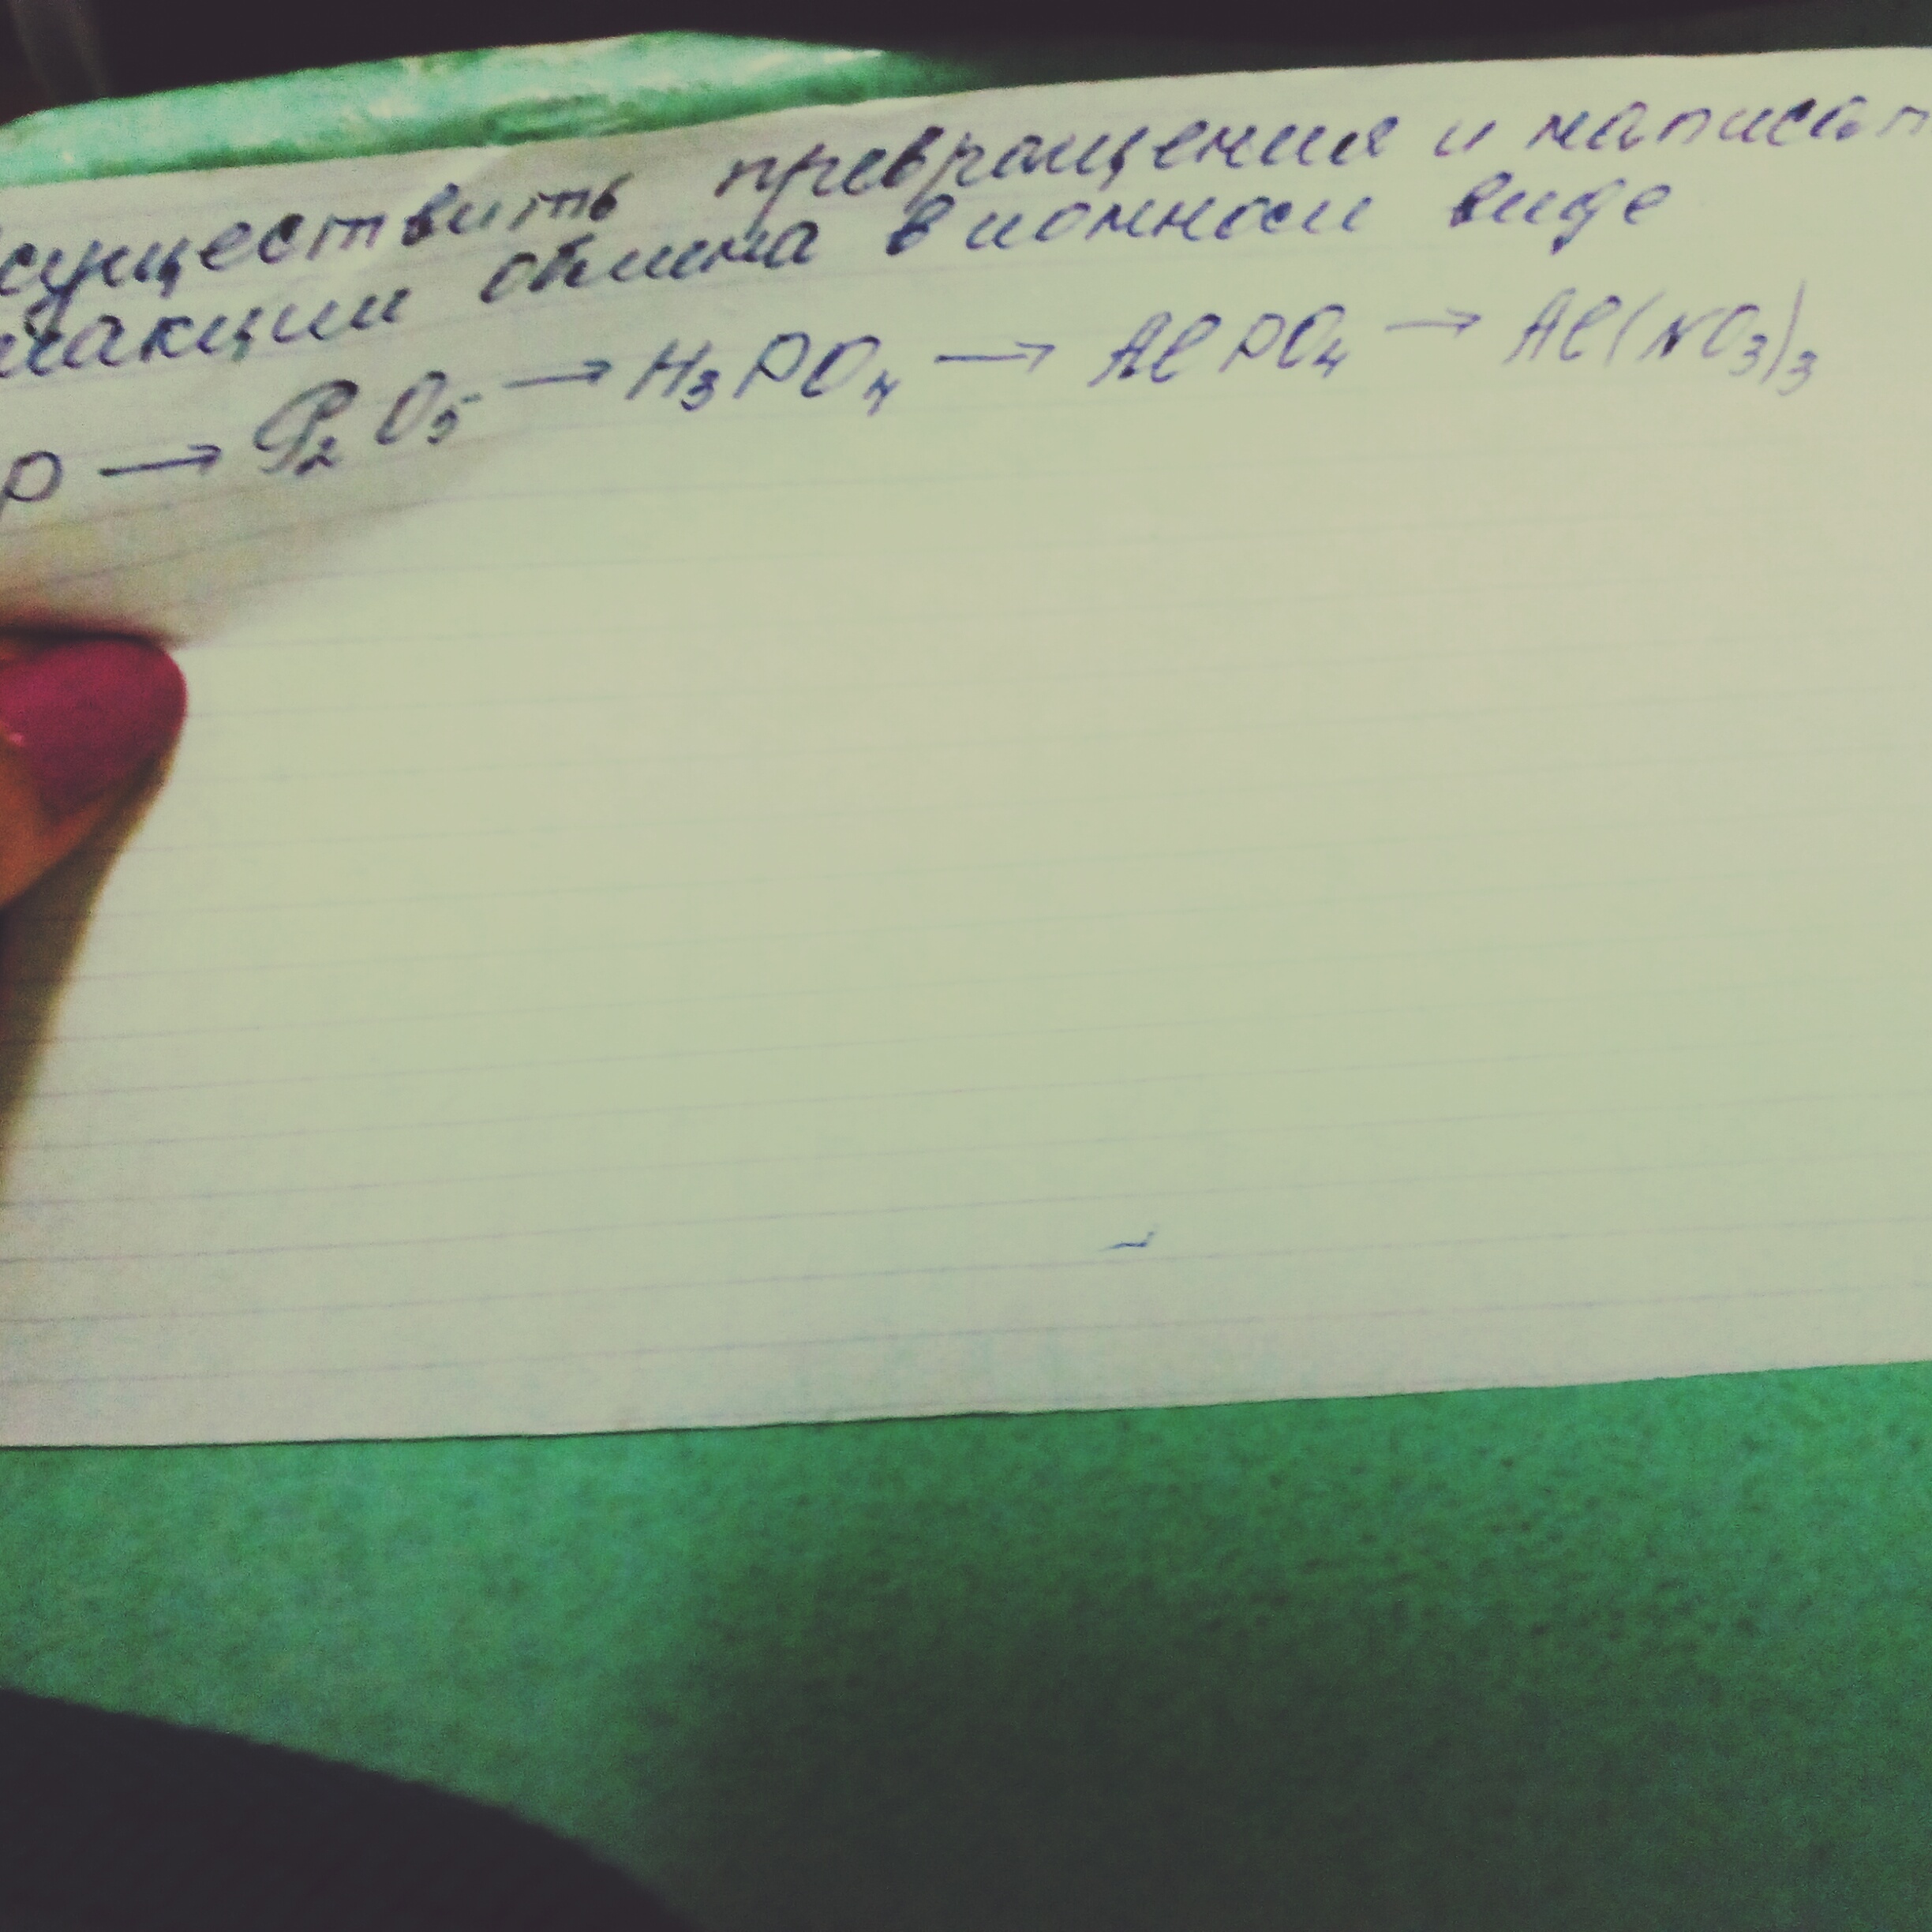 существить превращения и написат
реакции обмена в ионном виде
P → P₂O₅ → H₃PO₄ → AlPO₄ → Al(NO₃)₃